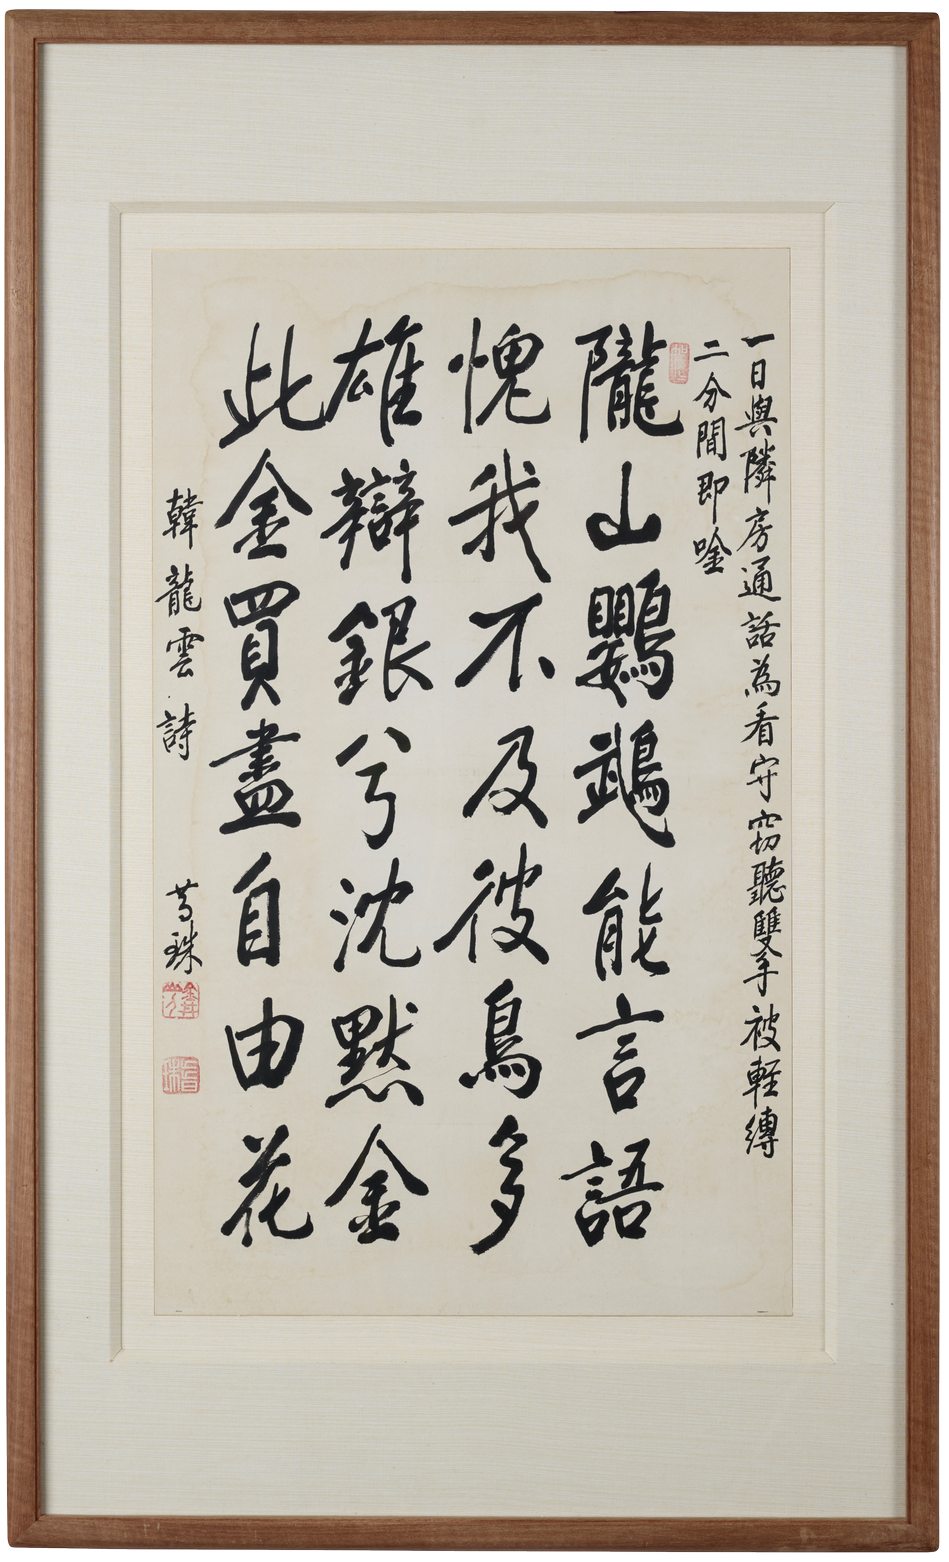 一日與隣房通話為看守窃聽雙手被軽縛
二分間即唫
隴山鸚鵡能言語
愧我不及彼鳥多
雄辯銀兮沈默金
此金買盡自由花
韓龍雲詩
珠